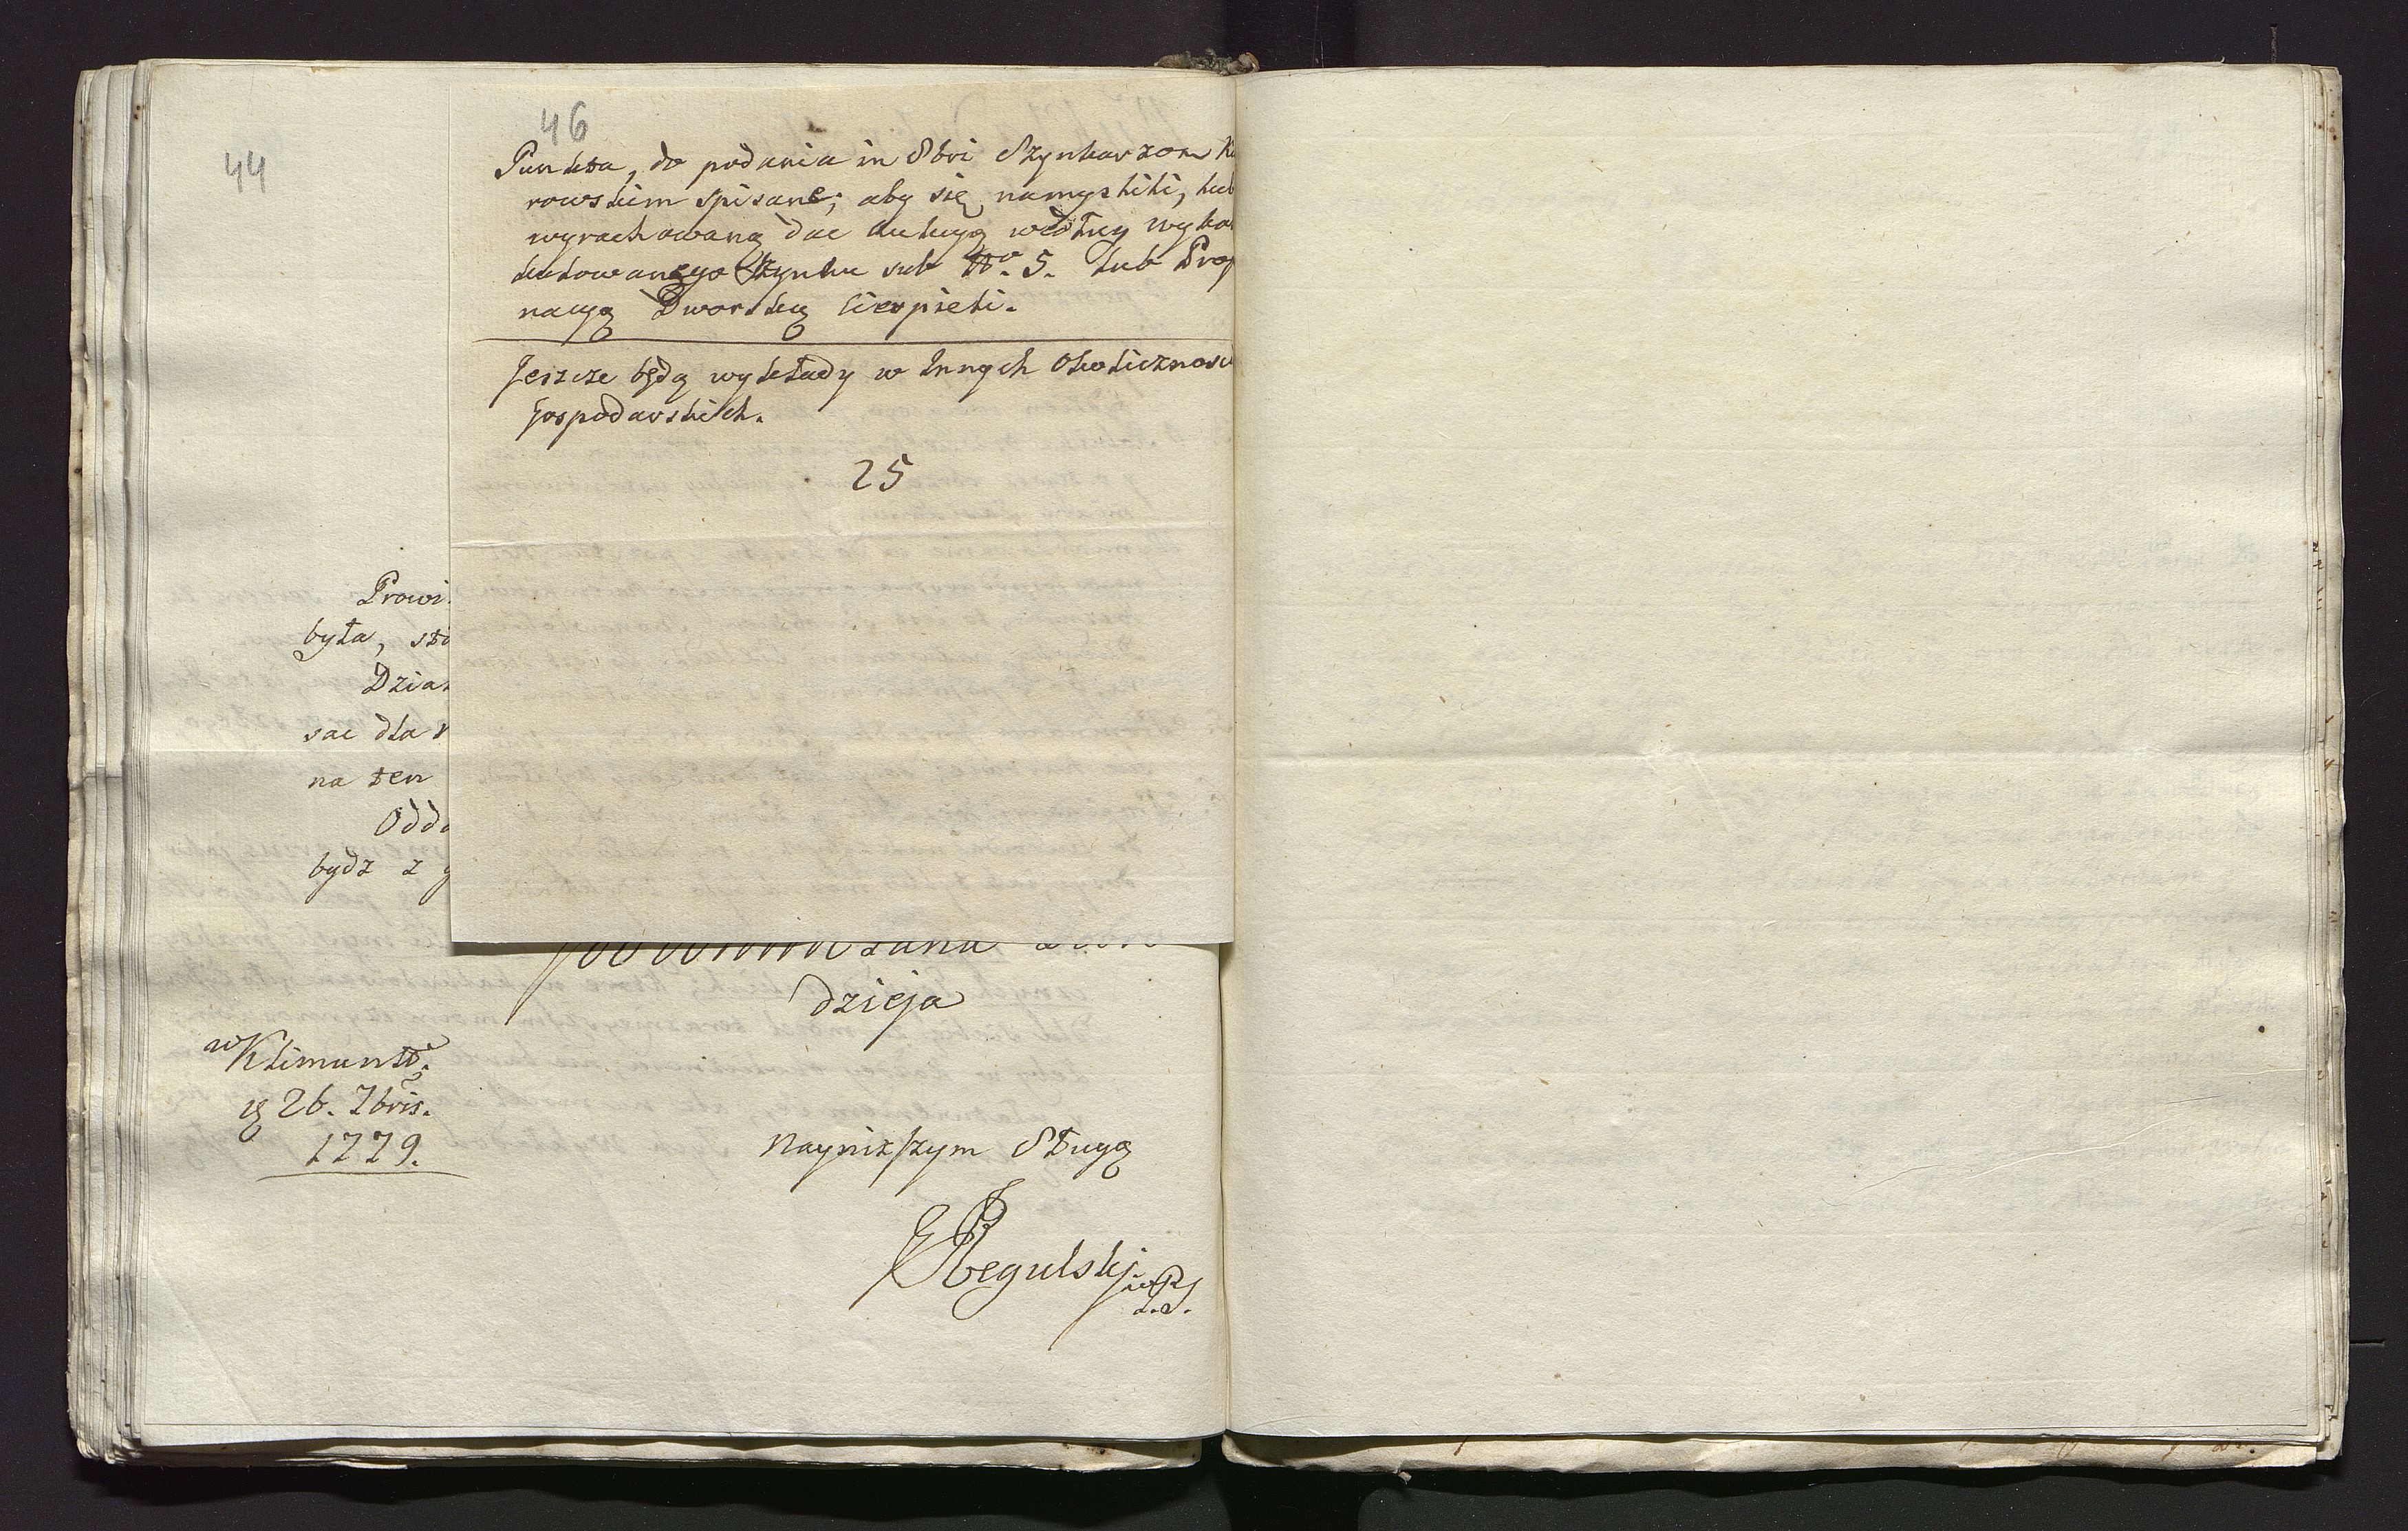 44
46
Punkta, do podania in 8bri Szynkarzom K
rowskim spisane; aby się namyslili, lub
wyrachowaną dac Aukcyą według wykal
kulowanego Szynku sub Nro. 5. lub Prop
nacyą Dworską cierpieli.
Jeszcze będą wykłady w Innych Okolicznosc
Gospodarskich.
25
Prowi
była, sto
Dział
sac dla
na ten
Oddo
bydz z
dzieja
w Klimunto:
o 26. 7bris.
1779.
Nayniższym Sługą
Regulski